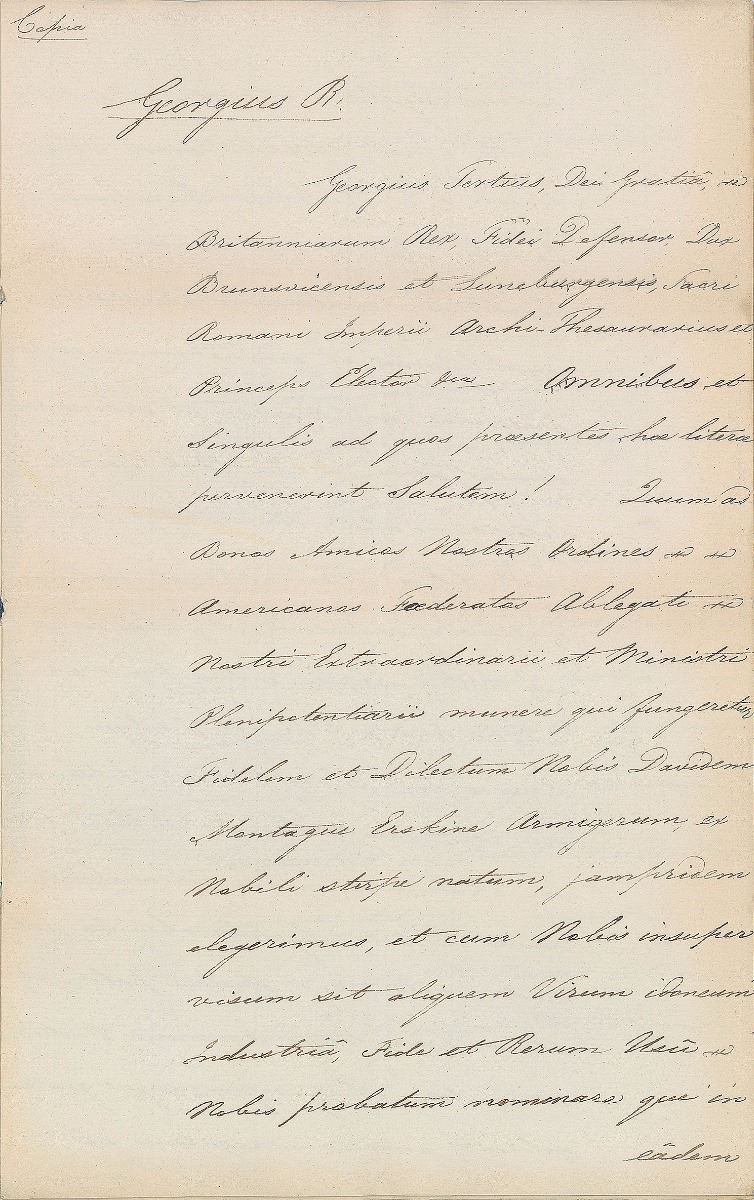 Copia
Georgius R.
Georgius Tertius, Dei Gratiâ,
Britanniarum Rex, Fidei Defensor, Dux
Brunsvicensis et Luneburgensis, Sacri
Romani Imperii Archi-Thesaurarius et
Princeps Elector &ca Omnibus et
Singulis ad quos præsentes hæ literæ
pervenerint Salutem! Quum ad
Bonos Amicos Nostros Ordines
Americanos Fœderatos Ablegati
Nostri Extraordinarii et Ministri
Plenipotentiarii munere qui fungeretur
Fidelem et Dilectum Nobis Davidem
Montague Erskine Armigerum, ex
Nobili stirpe natum, jampridem
elegerimus, et cum Nobis insuper
visum sit aliquem Virum idoneum
Industriâ, Fide et Rerum Usû
Nobis probatum nominare qui in
eâdem